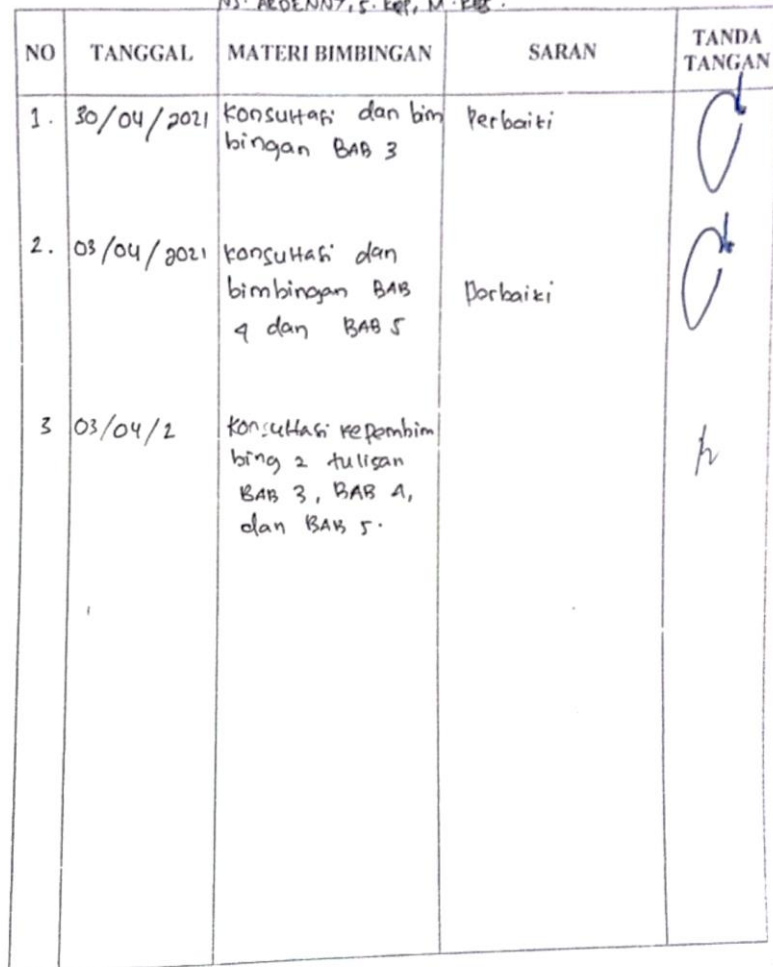 NS. ARDENNY, S. Kep, M. Kes.
NO TANGGAL MATERI BIMBINGAN SARAN TANDA TANGAN
1. 30/04/2021 Konsultasi dan bim Perbaiki
bingan BAB 3
2. 03/04/2021 konsultasi dan
bimbingan BAB Perbaiki
4 dan BAB 5
3 03/04/2 Konsultasi kepembim
bing 2 tulisan
BAB 3, BAB 4,
dan BAB 5.